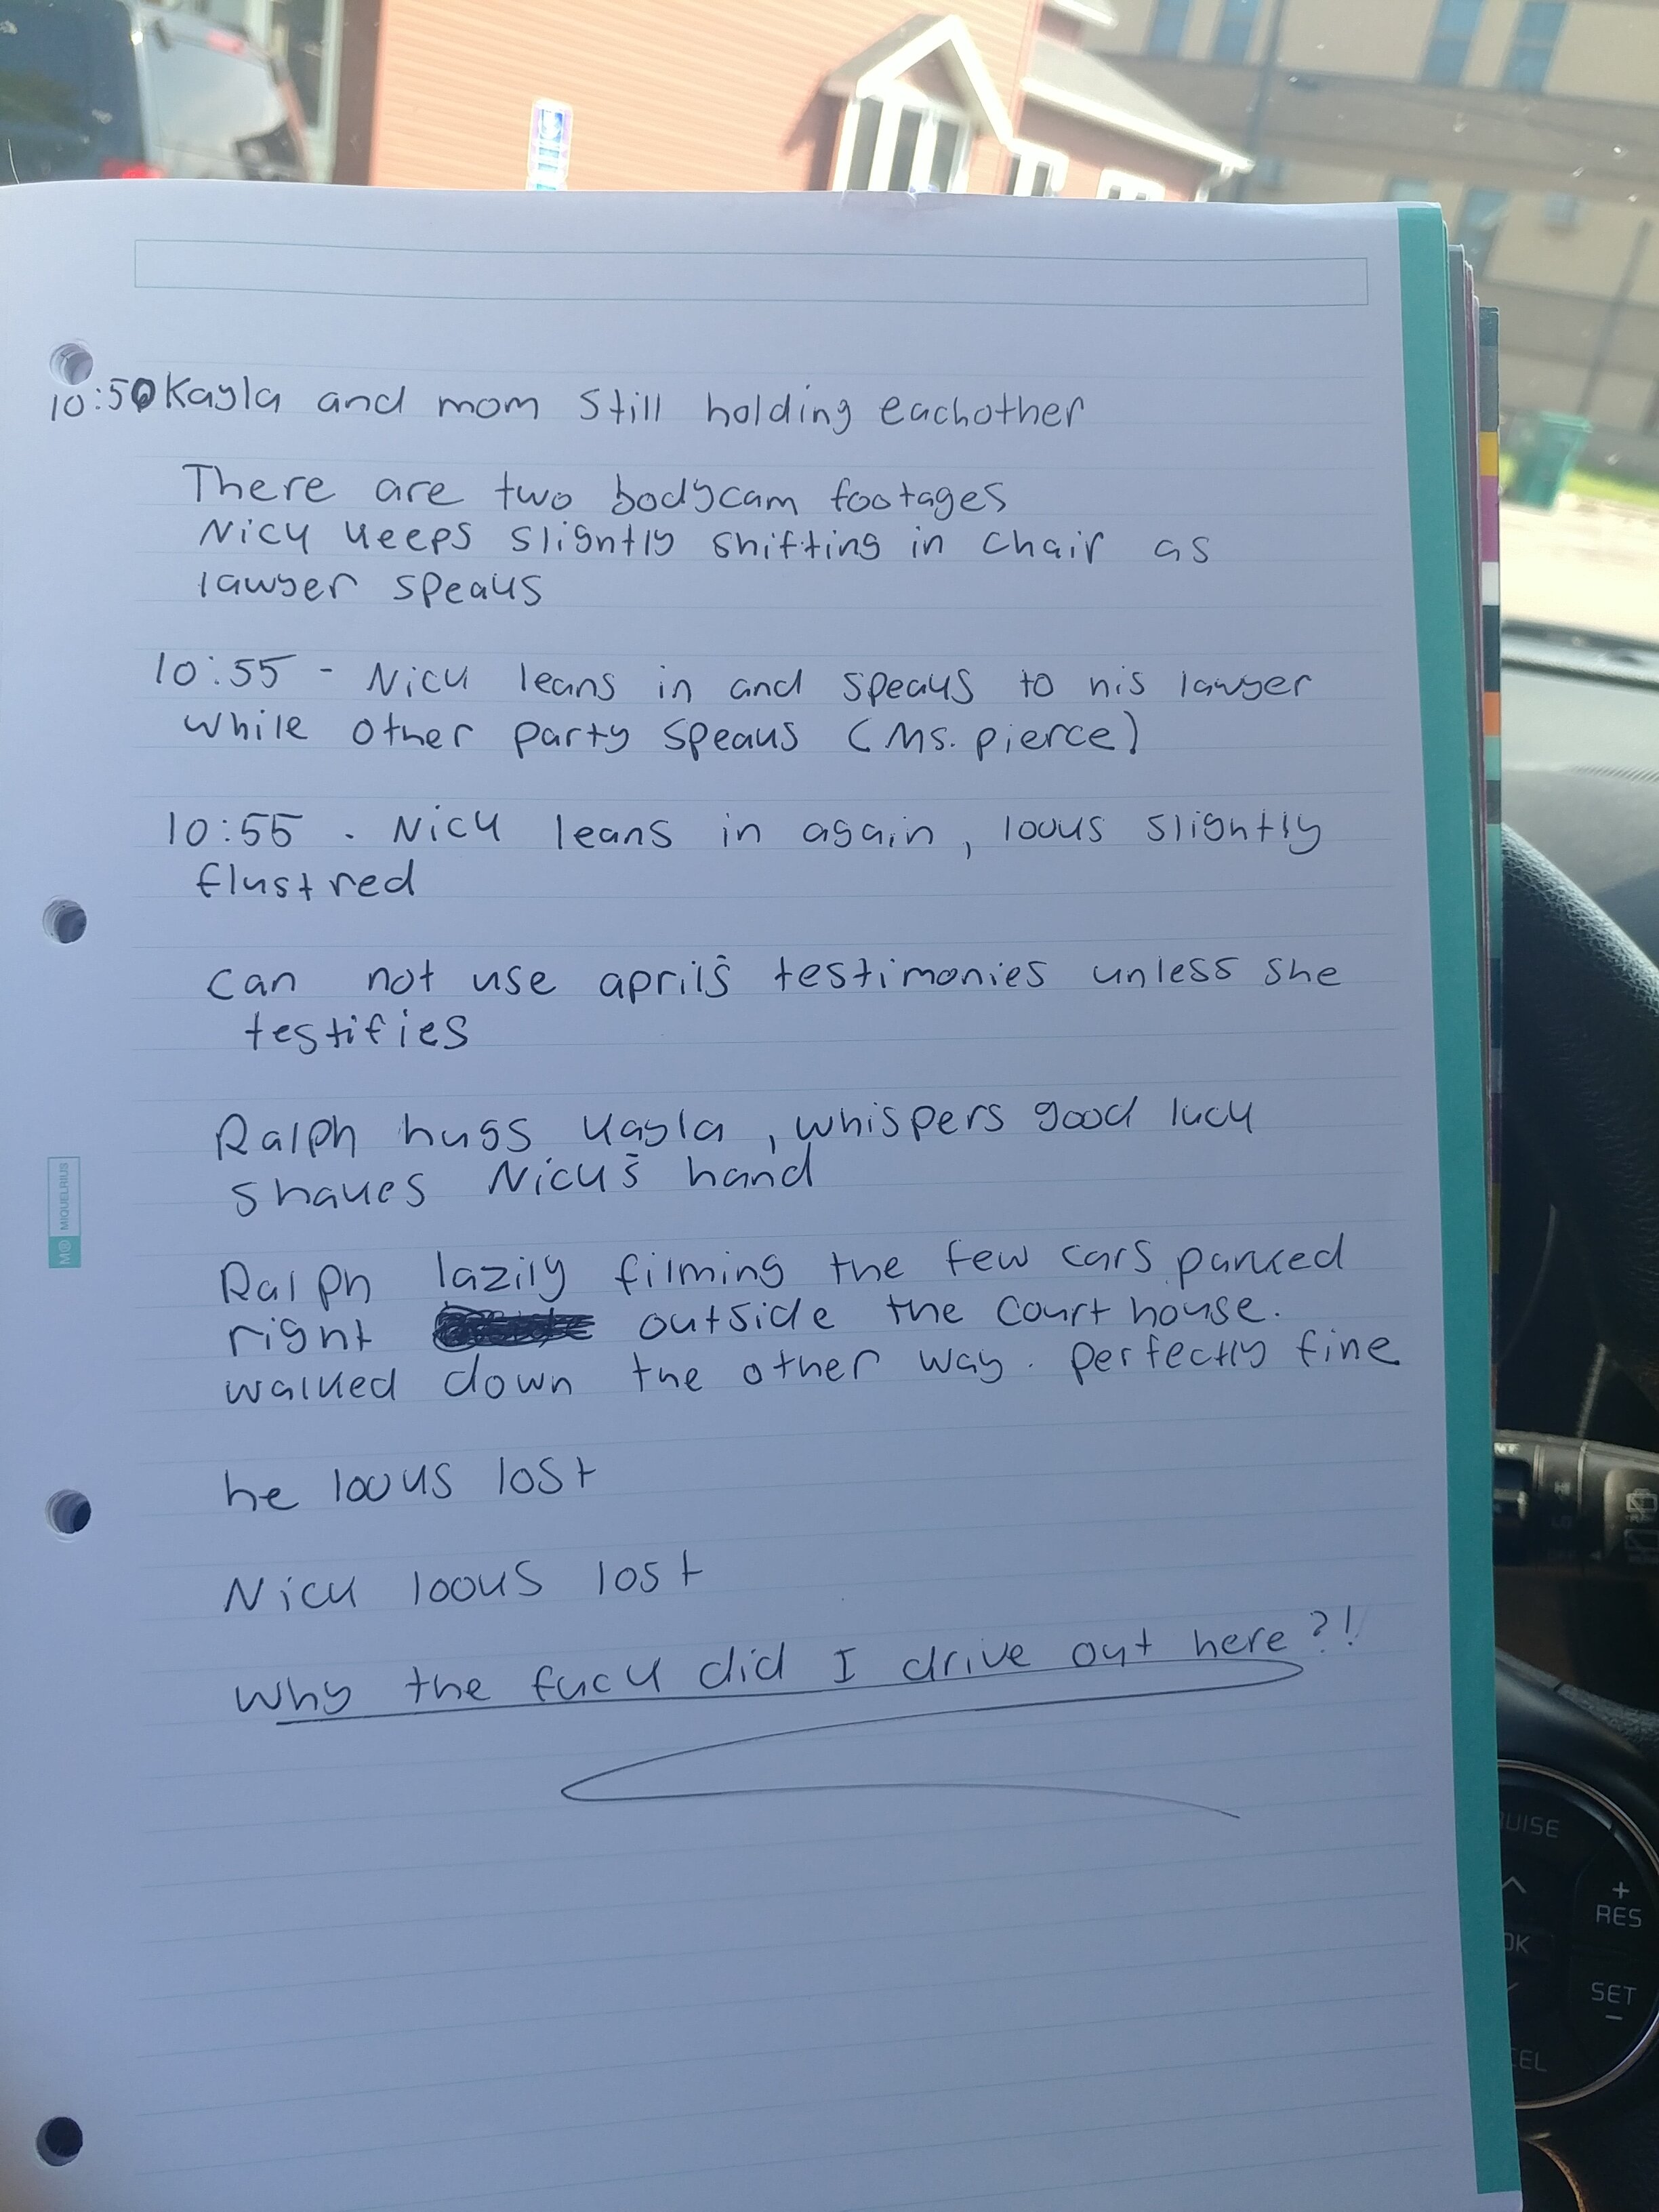 10:50 Kayla and mom still holding eachother
There are two bodycam footages
Nick keeps slightly shifting in chair as
lawyer speaks
10:55 - Nick leans in and speaks to his lawyer
while other party speaks (Ms. pierce)
10:55 . Nick leans in again, looks slightly
flustred
can not use april's testimonies unless she
testifies
Ralph hugs Kayla, whispers good luck
shakes Nick's hand
Ralph lazily filming the few cars parked
right outside the court house.
walked down the other way. perfectly fine
he looks lost
Nick looks lost
Why the fuck did I drive out here?!
M® MIQUELRIUS
RES
OK
SET